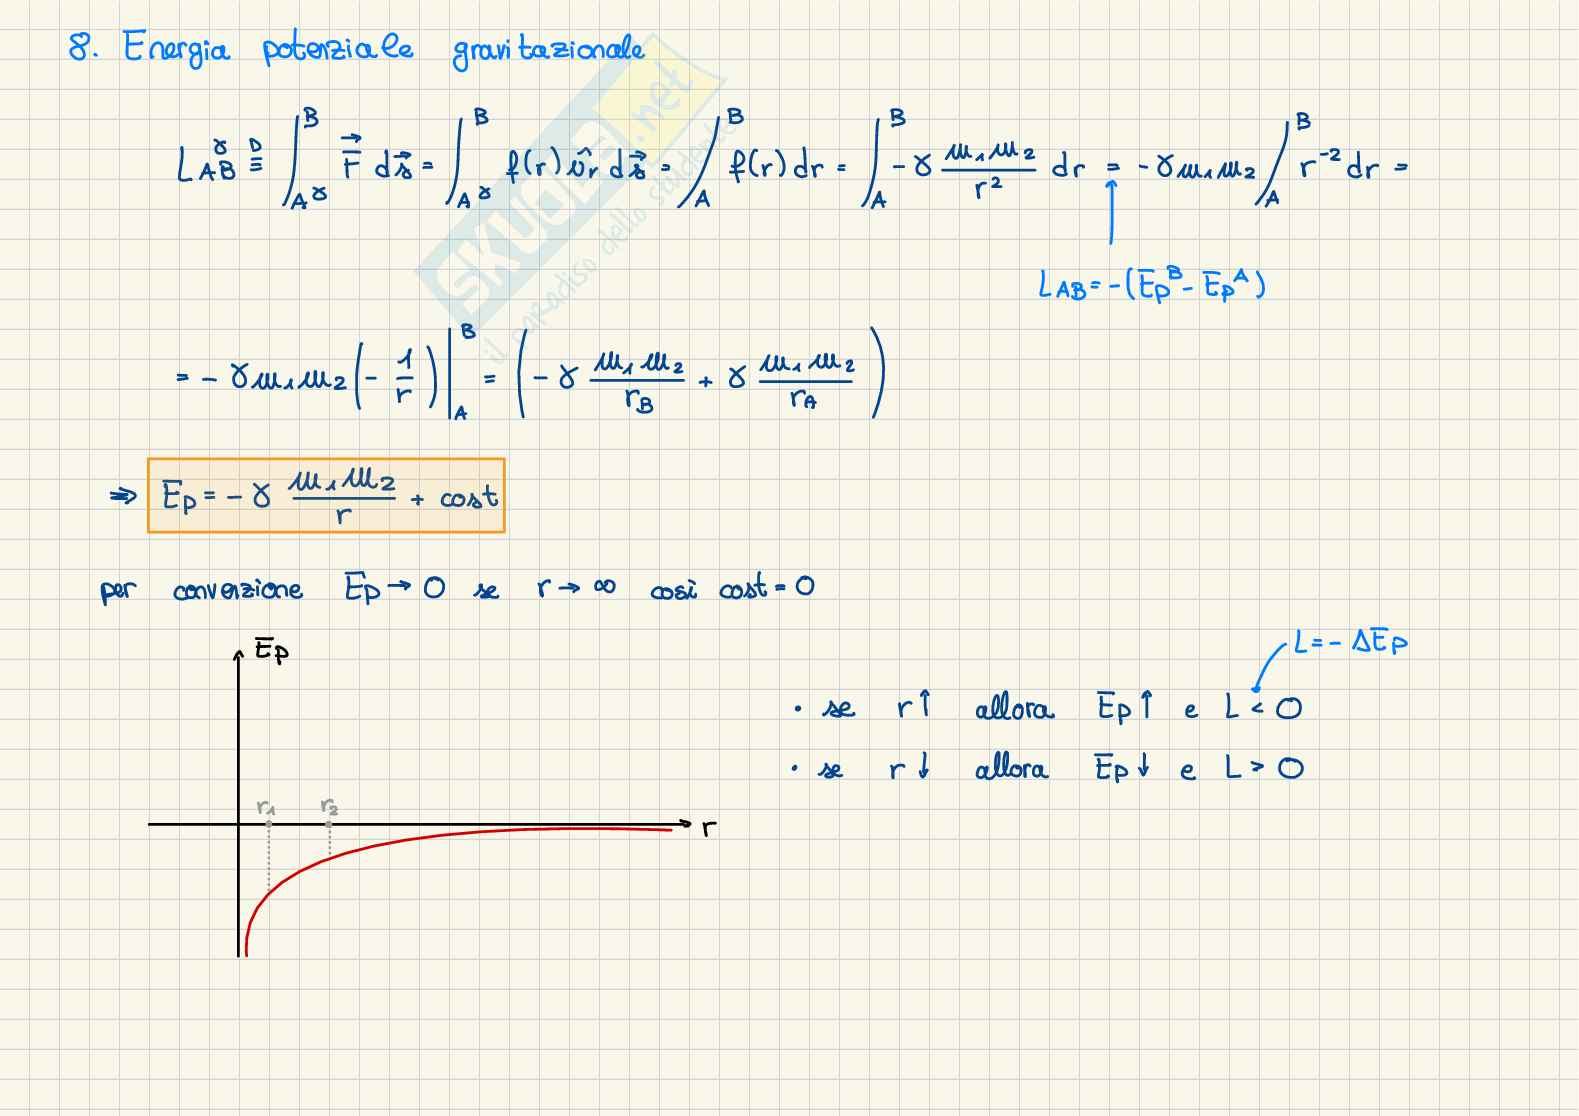 8. Energia potenziale gravitazionale
L_AB^γ ≝ ∫_{Aγ}^{B} F⃗ ds⃗ = ∫_{Aγ}^{B} f(r) û_r ds⃗ = ∫_A^B f(r) dr = ∫_A^B - γ m₁m₂/r² dr = - γ m₁m₂ ∫_A^B r⁻² dr =
L_AB = -(E_p^B - E_p^A)
= - γ m₁m₂ (- 1/r) |_A^B = (- γ m₁m₂/r_B + γ m₁m₂/r_A)
⇒ E_p = - γ m₁m₂/r + cost
per convenzione E_p → 0 se r → ∞ così cost = 0
E_p
L = - ΔE_p
• se r↑ allora E_p↑ e L < 0
• se r↓ allora E_p↓ e L > 0
r₁ r₂
r
SKUOLA.net
il paradiso dello studente